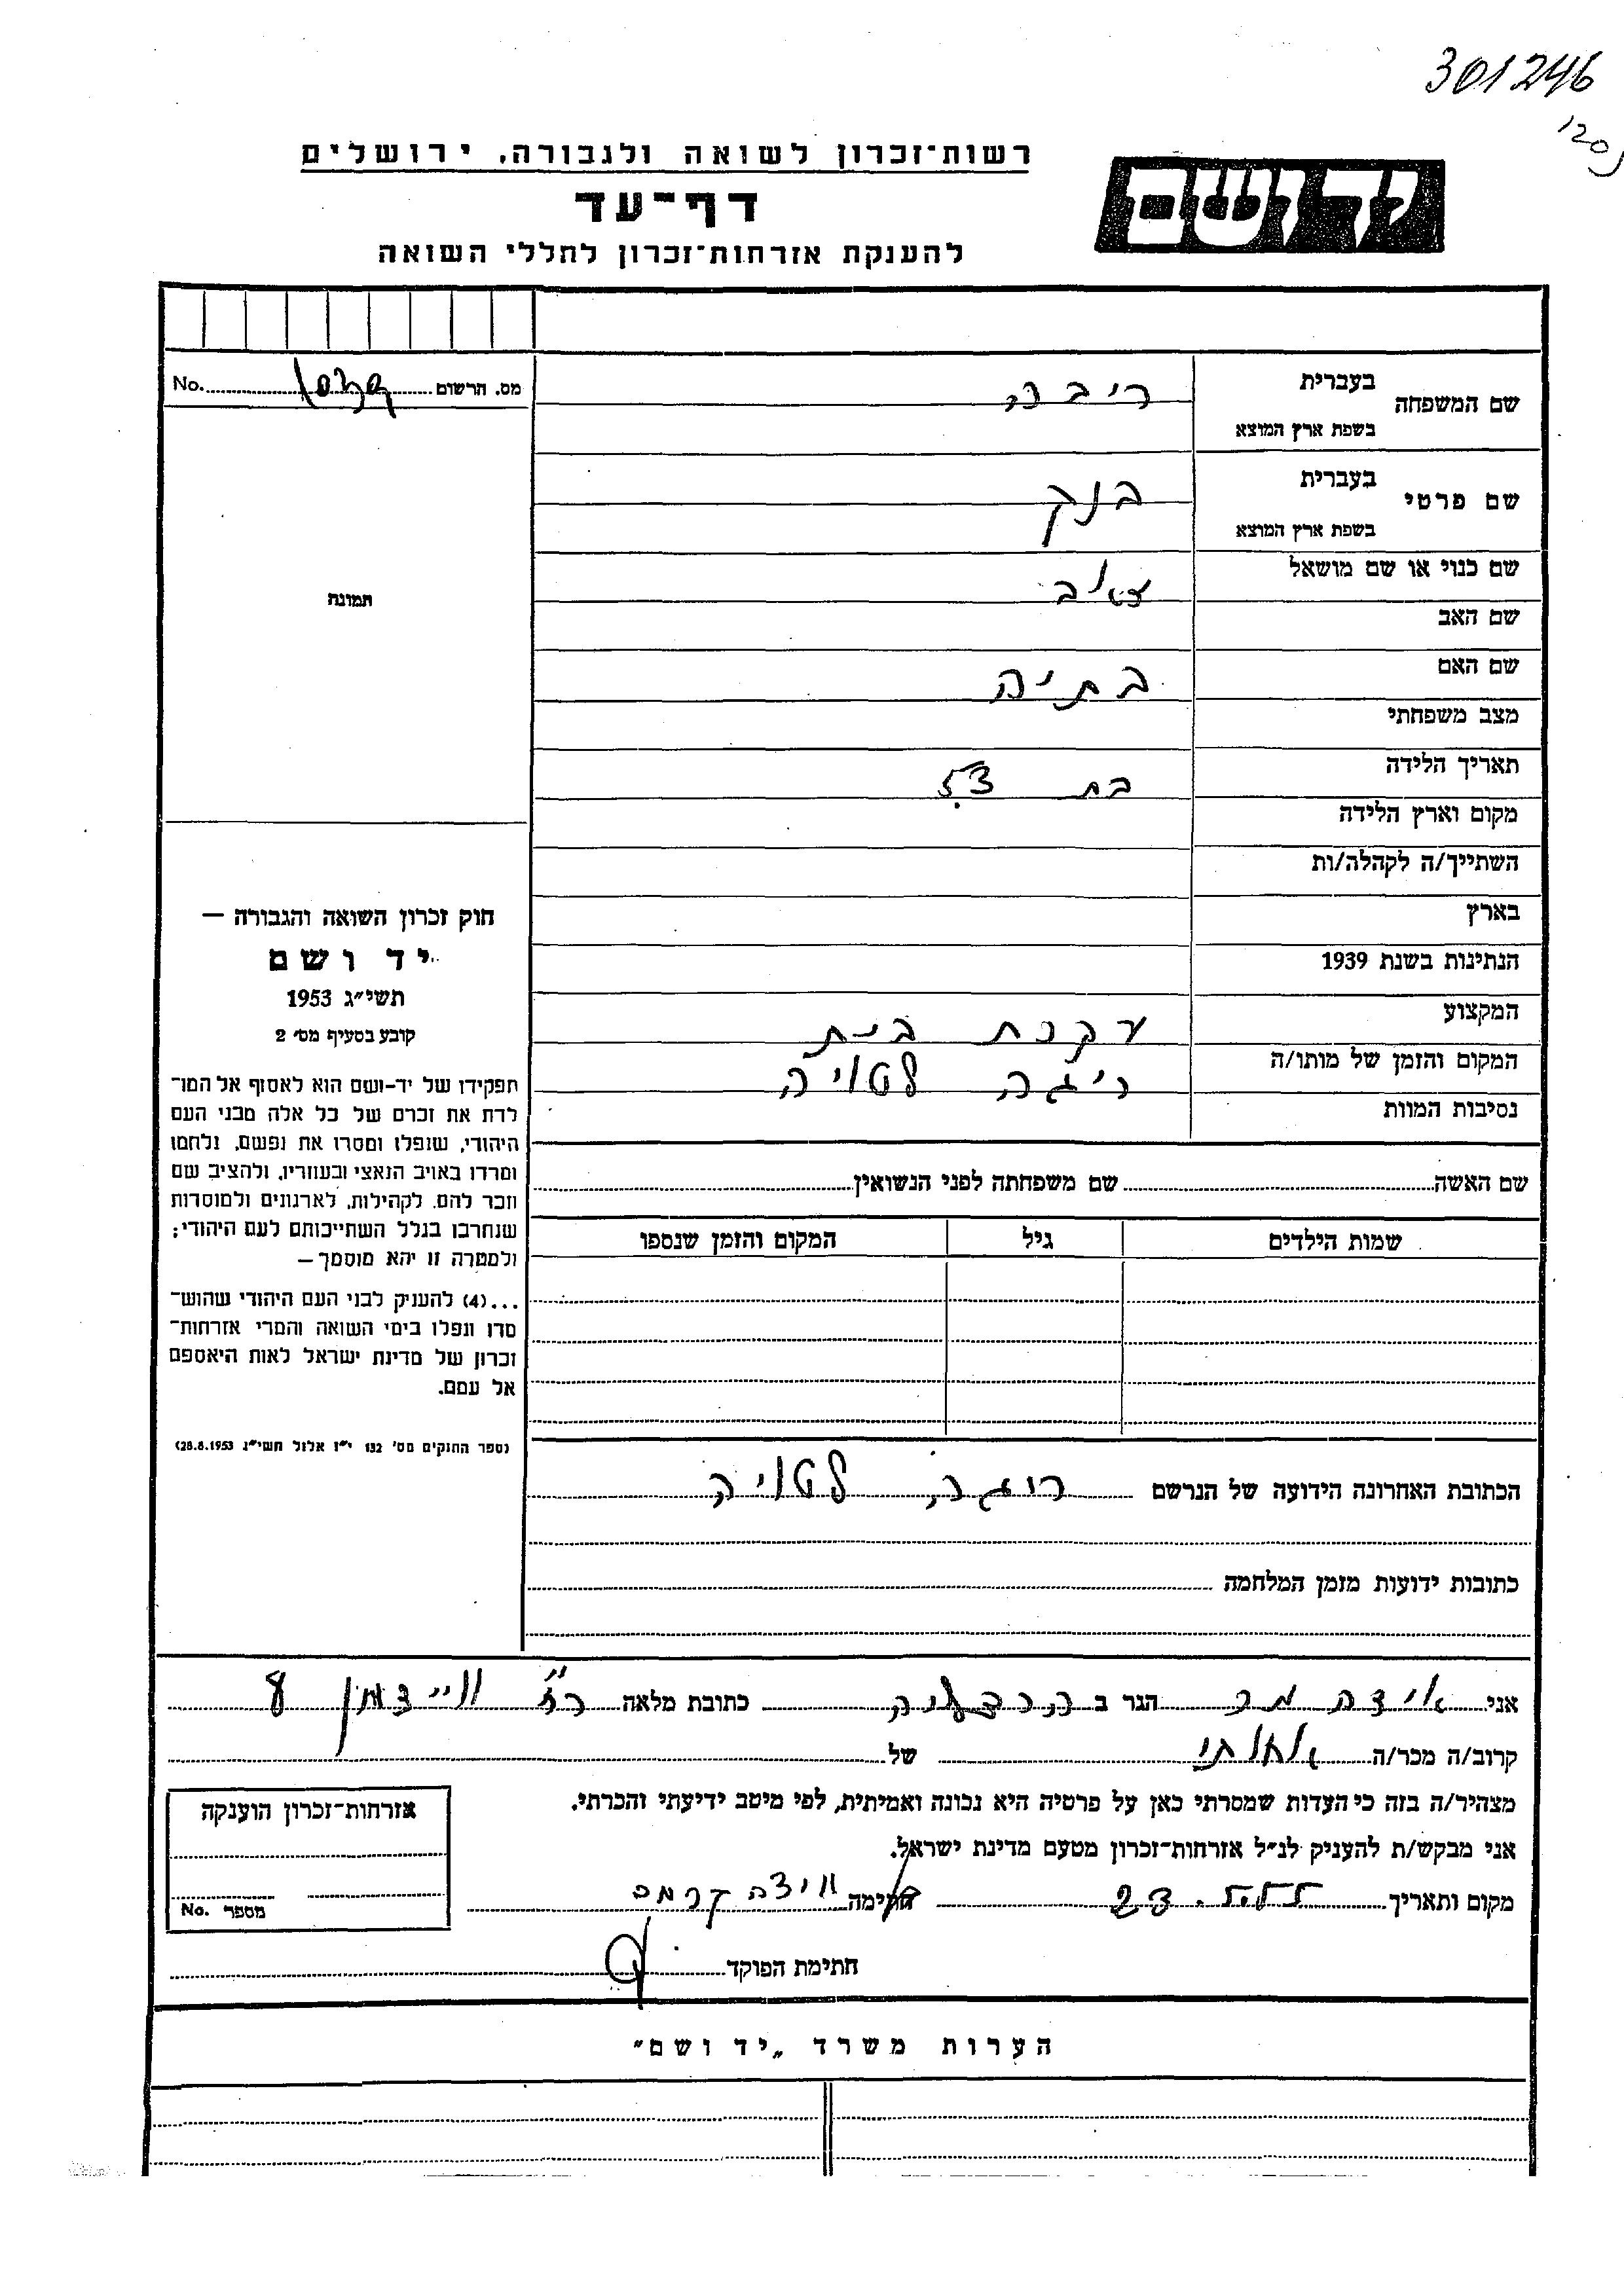 301246
1205
ידושם
רשות־זכרון לשואה ולגבורה, ירושלים
דף־עד
להענקת אזרחות־זכרון לחללי השואה
שם המשפחה
בעברית
ריבה
בשפת ארץ המוצא
שם פרטי
בעברית
בשפת ארץ המוצא
שם כנוי או שם מושאל
שם האב
שם האם
בתיה
מצב משפחתי
תאריך הלידה
בת
מקום וארץ הלידה
השתייך/ה לקהלה/ות
בארץ
הנתינות בשנת 1939
המקצוע
עקרת בית
המקום והזמן של מותו/ה
ריגה לטויה
נסיבות המוות
מס. הרשום No.
תמונה
חוק זכרון השואה והגבורה —
יד ושם
תשי״ג 1953
קובע בסעיף מס׳ 2
תפקידו של יד-ושם הוא לאסוף אל המו־
לדת את זכרם של כל אלה מבני העם
היהודי, שנפלו ומסרו את נפשם, נלחמו
ומרדו באויב הנאצי ובעוזריו, ולהציב שם
וזכר להם, לקהילות, לארגונים ולמוסדות
שנחרבו בגלל השתייכותם לעם היהודי;
ולמטרה זו יהא מוסמך —
...(4) להעניק לבני העם היהודי שהוש־
מדו ונפלו בימי השואה והמרי אזרחות־
זכרון של מדינת ישראל לאות היאספם
אל עמם.
(ספר החוקים מס׳ 132 י״ז אלול תשי״ג 28.8.1953)
שם האשה שם משפחתה לפני הנשואין
שמות הילדים גיל המקום והזמן שנספו
הכתובת האחרונה הידועה של הנרשם ריגה לטויה
כתובות ידועות מזמן המלחמה
אני הגר ב הרצליה כתובת מלאה רח׳ וייצמן 8
קרוב/ה מכר/ה של
מצהיר/ה בזה כי העדות שמסרתי כאן על פרטיה היא נכונה ואמיתית, לפי מיטב ידיעתי והכרתי.
אני מבקש/ת להעניק לנ״ל אזרחות־זכרון מטעם מדינת ישראל.
מקום ותאריך חתימה
חתימת הפוקד
אזרחות־זכרון הוענקה
מספר No.
הערות משרד „יד ושם״